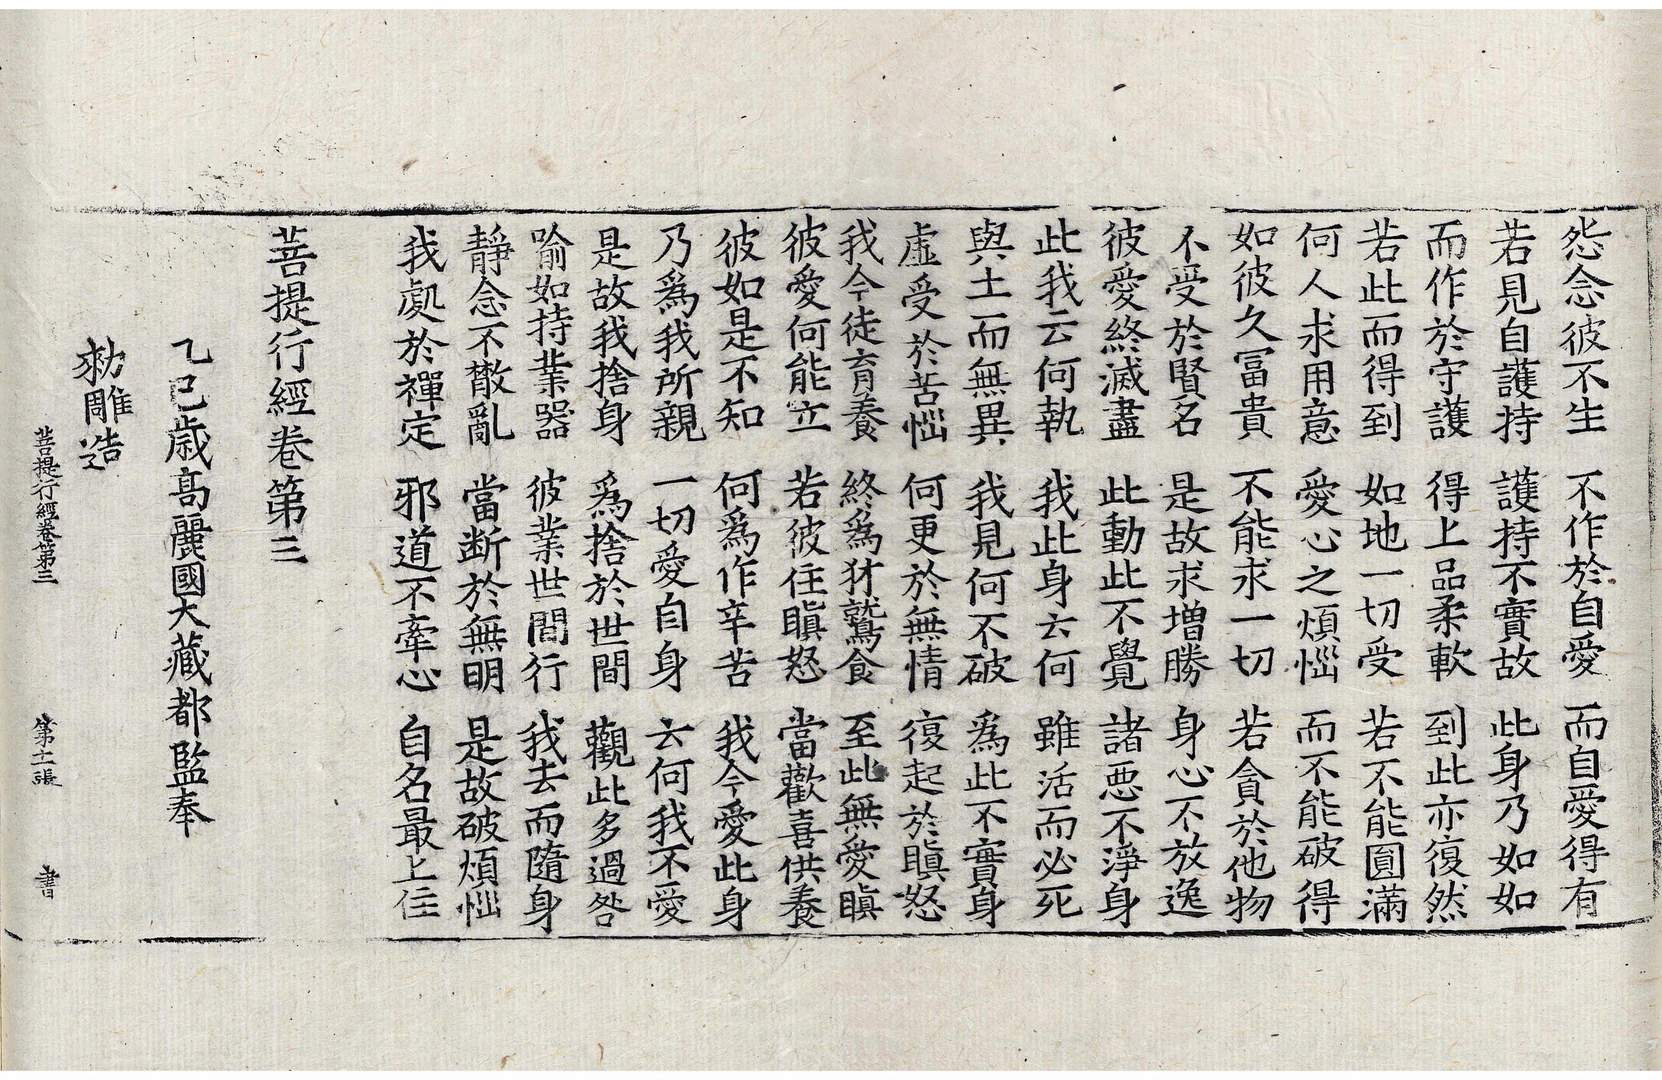 怨念彼不生 不作於自愛 而自愛得有
若見自護持 護持不實故 此身乃如如
而作於守護 得上品柔軟 到此亦復然
若此而得到 如地一切受 若不能圓滿
何人求用意 愛心之煩惱 而不能破得
如彼久冨貴 不能求一切 若貪於他物
不受於賢名 是故求増勝 身心不放逸
彼愛終滅盡 此動此不覺 諸惡不淨身
此我云何執 我此身云何 雖活而必死
與土而無異 我見何不破 為此不實身
虛受於苦惱 何更於無情 復起於瞋怒
我今徒育養 終為犲鷲食 至此無愛瞋
彼愛何能立 若彼住瞋怒 當歡喜供養
彼如是不知 何為作辛苦 我今愛此身
乃為我所親 一切愛自身 云何我不愛
是故我捨身 為捨於世間 觀此多過咎
喻如持業器 彼業世間行 我去而隨身
靜念不散亂 當断於無明 是故破煩惱
我處於禪定 邪道不牽心 自名最上住
菩提行經卷第三
乙巳歲高麗國大藏都監奉
勑雕造
菩提行經卷第三 第十二張 書